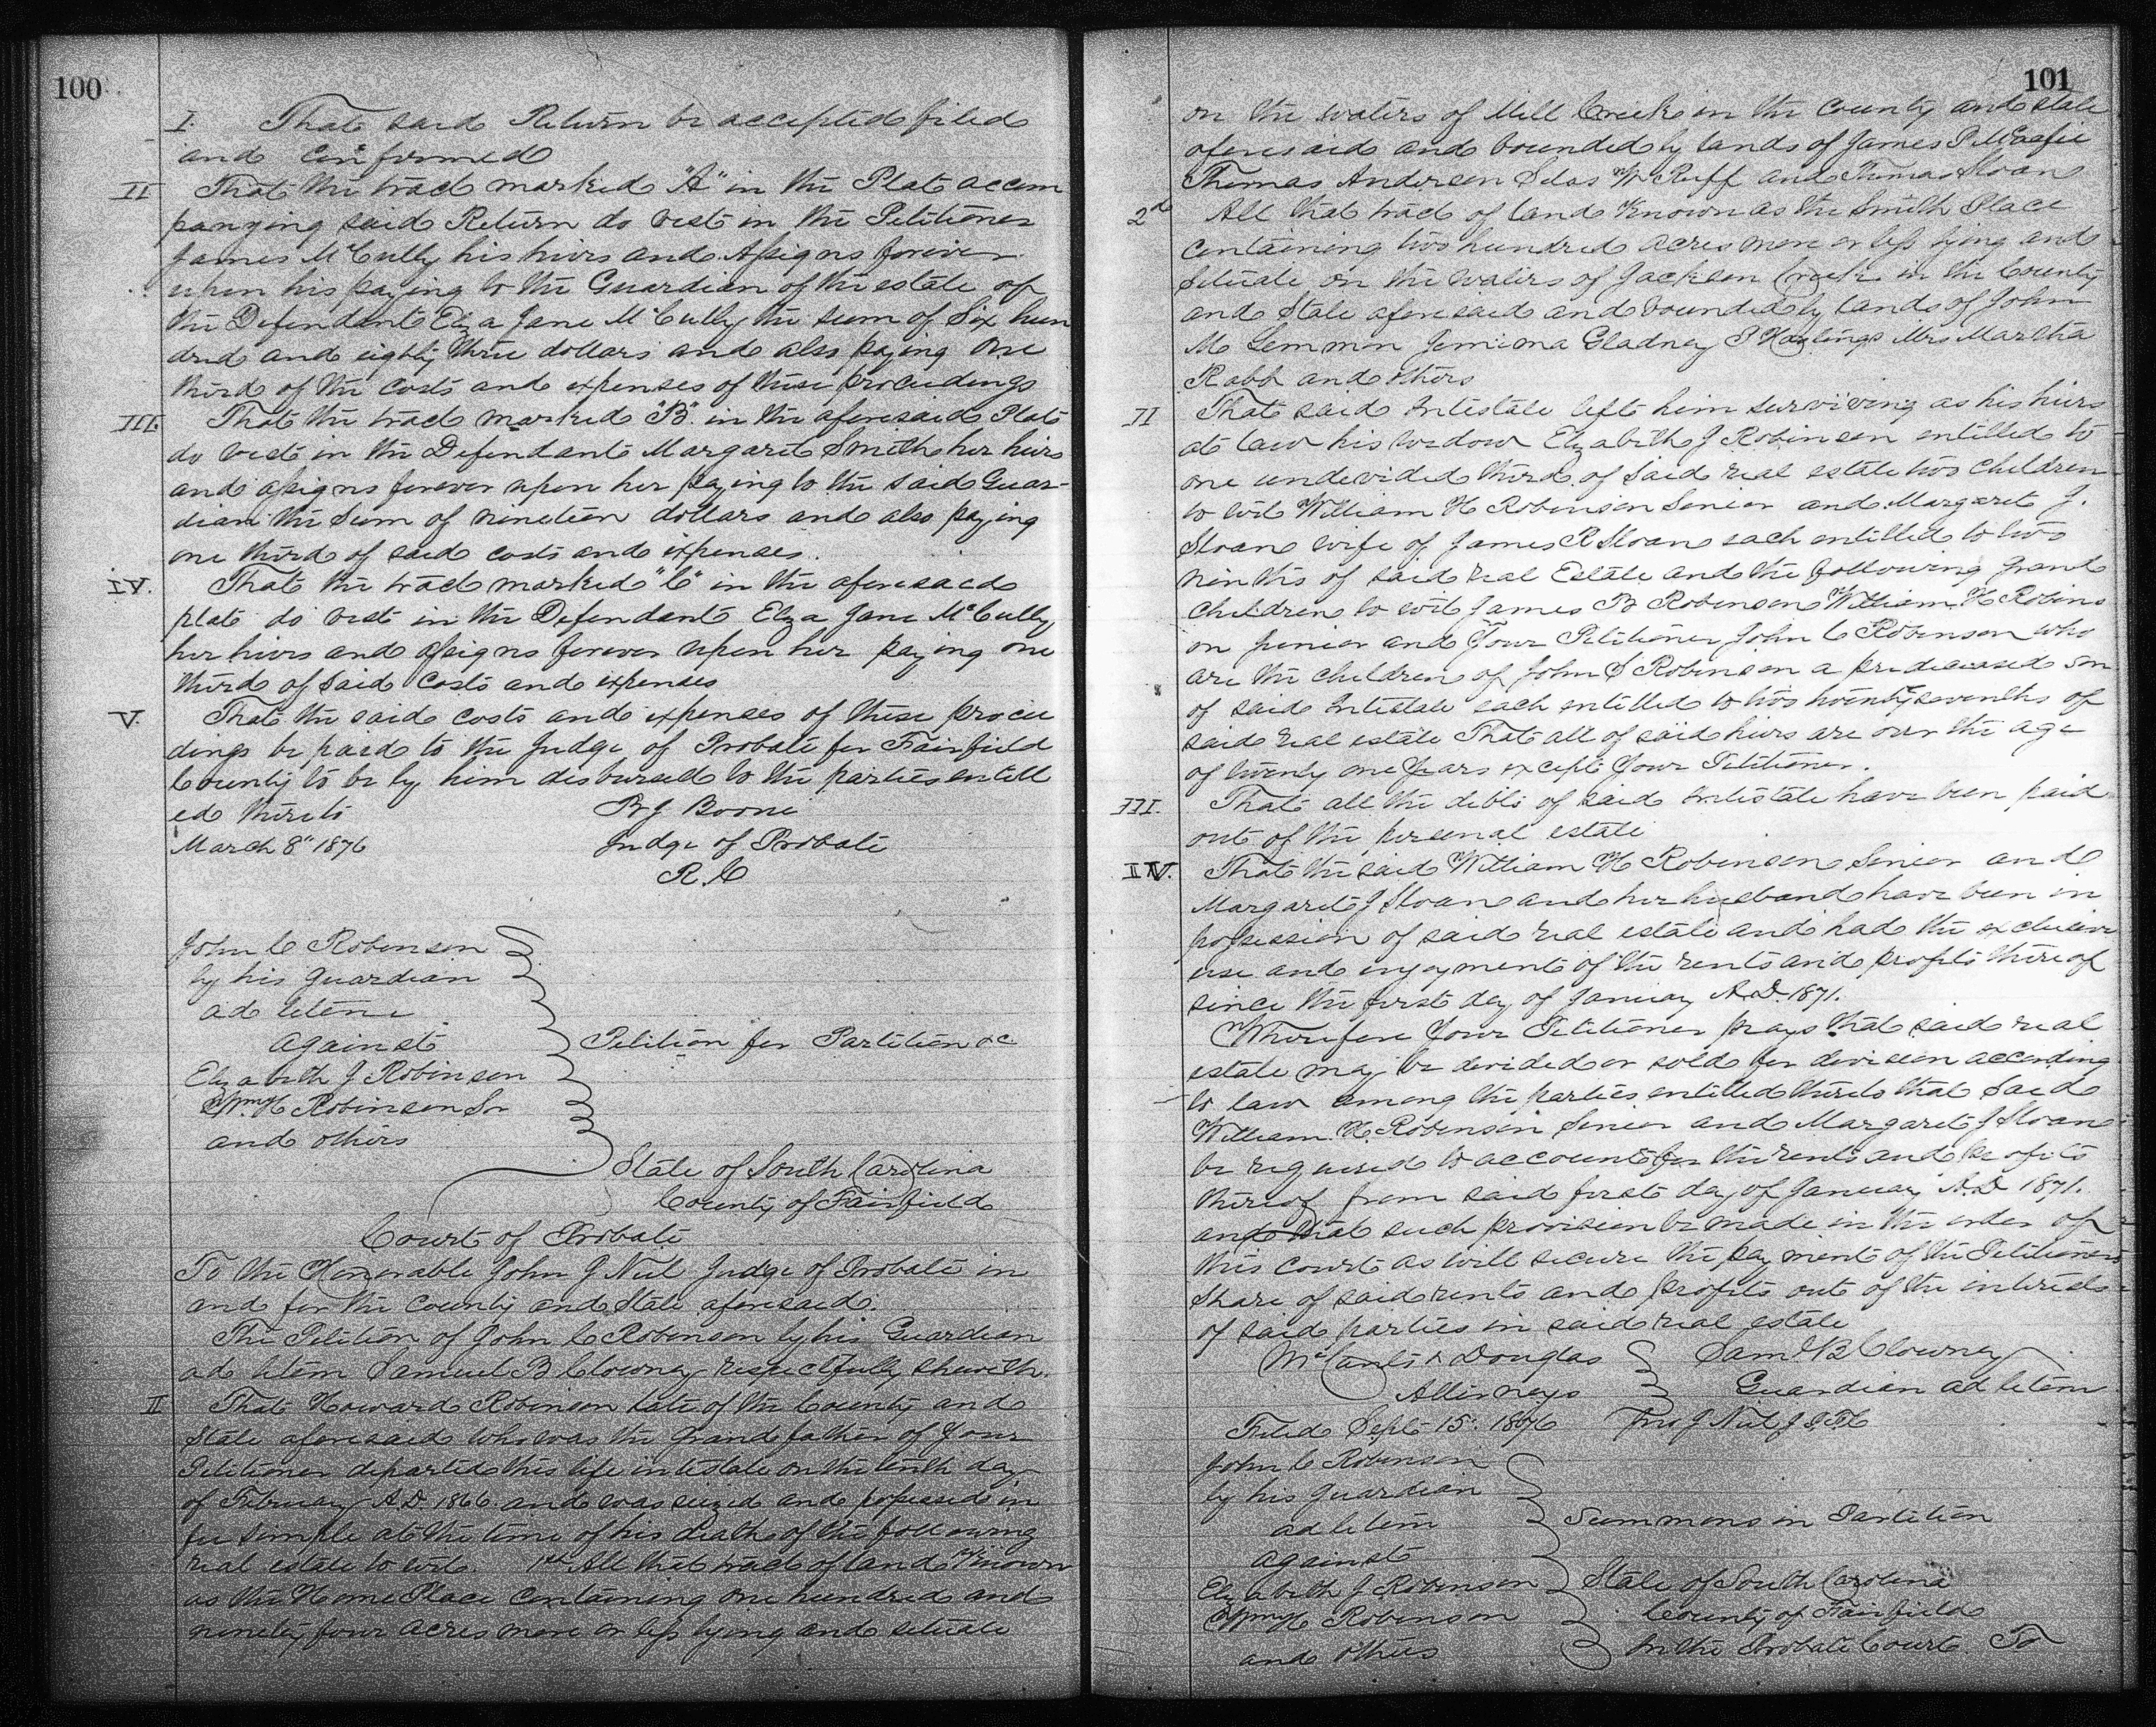 100
I. That said Return be accepted filed
and confirmed
II That the tract marked "A" in the Plat accom
panying said Return do vest in the Petitioner
James McCully his heirs and Assigns forever
upon his paying to the Guardian of the estate of
the Defendant Eliza Jane McCully the sum of Six hun
dred and eighty three dollars and also paying One
third of the costs and expenses of these proceedings
III. That the tract marked "B" in the aforesaid Plat
do vest in the Defendant Margaret Smith her heirs
and assigns forever upon her paying to the said Guar-
dian the Sum of nineteen dollars and also paying
one third of said costs and expenses.
IV. That the tract marked "C" in the aforesaid
plat do vest in the Defendant Eliza Jane McCully
her heirs and assigns forever upon her paying one
third of said costs and expenses
V. That the said costs and expenses of these procee
dings be paid to the Judge of Probate for Fairfield
County to be by him disbursed to the parties entitl
ed thereto
B J Boone
March 8" 1876
Judge of Probate
R. C
John C Robinson
by his guardian
ad litem
against
Petition for Partition &c
Elizabeth J Robinson
Wm H Robinson Sr
and others
State of South Carolina
County of Fairfield
Court of Probate
To the Honorable John J Neil Judge of Probate in
and for the County and State aforesaid.
The Petition of John C Robinson by his Guardian
ad litem Samuel B Clowney respectfully sheweth.
II That Howard Robinson late of the County and
State aforesaid who was the grand father of your
Petitioner departed this life intestate on the tenth day
of February A.D. 1866. and was seized and possessed in
fee simple at the time of his death of the following
real estate to wit. 1st All that tract of land Known
as the Home Place Containing one hundred and
ninety four acres more or less lying and situate
101
on the waters of Mill Creek in the County and State
aforesaid and bounded by lands of James P
Thomas Anderson Silas W Ruff and Thomas Sloan
2d All that tract of land Known as the Smith Place
containing two hundred acres more or less lying and
situate on the waters of Jackson Creek in the County
and State aforesaid and bounded by lands of John
M Lemmon Jemima Gladney Mrs Martha
Rabb and others
II That said intestate left him surviving as his heirs
at law his widow Elizabeth J Robinson entitled to
one undivided third of said real estate two children
to wit William H Robinson Senior and Margaret J.
Sloan wife of James R Sloan each entitled to two
ninths of said real Estate and the following grand
children to wit James B Robinson William H Robins
on junior and Your Petitioner John C Robinson who
are the children of John S Robinson a predeceased son
of said intestate each entitled to two twenty sevenths of
said real estate That all of said heirs are over the age
of twenty one years except Your Petitioner.
III. That all the debts of said intestate have been paid
out of the personal estate
IV. That the said William H Robinson Senior and
Margaret J Sloan and her husband have been in
possession of said real estate and had the exclusive
use and enjoyment of the rents and profits thereof
since the first day of January A.D. 1871.
Wherefore Your Petitioner prays that said real
estate may be divided or sold for division according
to law among the parties entitled thereto that said
William H. Robinson Senior and Margaret J Sloan
be required to account for the rents and profits
thereof from said first day of January A.D 1871.
and that such provision be made in the order of
this court as will secure the payment of the Petitioners
share of said rents and profits out of the interests
of said parties in said real estate
McCants & Douglas
Saml B Clowney
Attorneys
Guardian ad litem
Filed Sept 15" 1876 Jno J Neil J.P.F.C
John C Robinson
by his guardian
ad litem
Summons in Partition
against
Elizabeth J Robinson
State of South Carolina
Wm H Robinson
County of Fairfield
and others
In the Probate Court. To